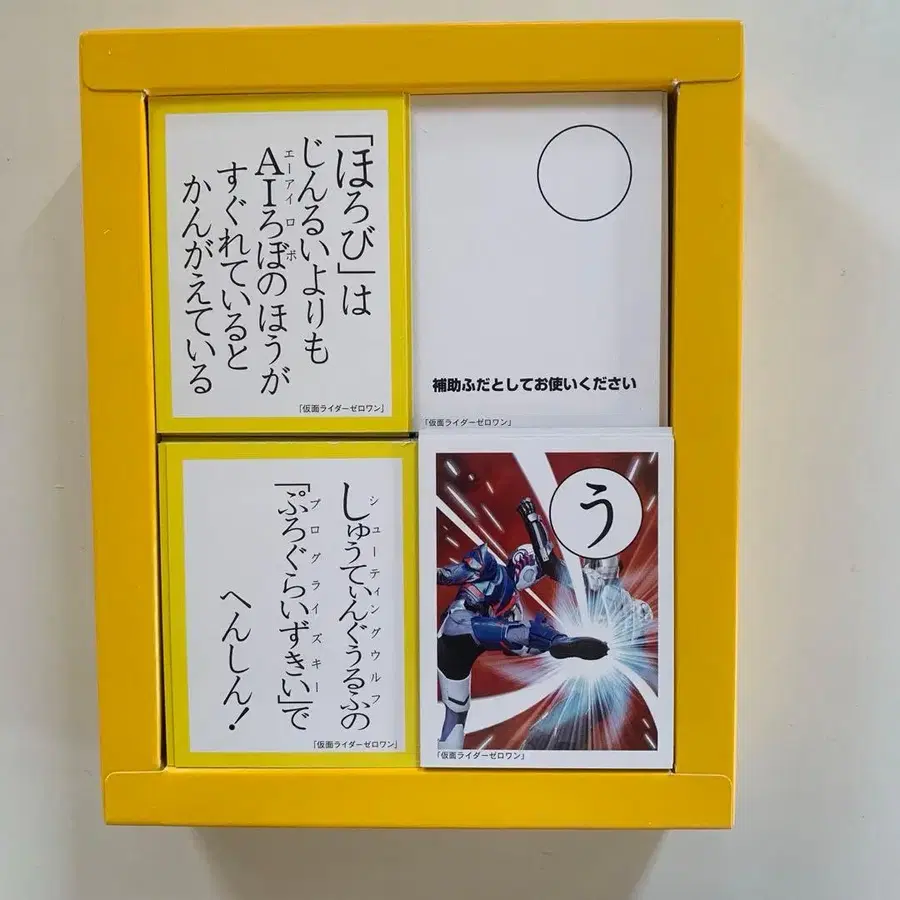 「ほろび」は
じんるいよりも
エーアイ ロボ
AIろぼのほうが
すぐれていると
かんがえている
「仮面ライダーゼロワン」
補助ふだとしてお使いください
「仮面ライダーゼロワン」
シューティングウルフ
しゅうてぃんぐうるふの
プログライズキー
「ぷろぐらいずきい」で
へんしん!
「仮面ライダーゼロワン」
う
「仮面ライダーゼロワン」